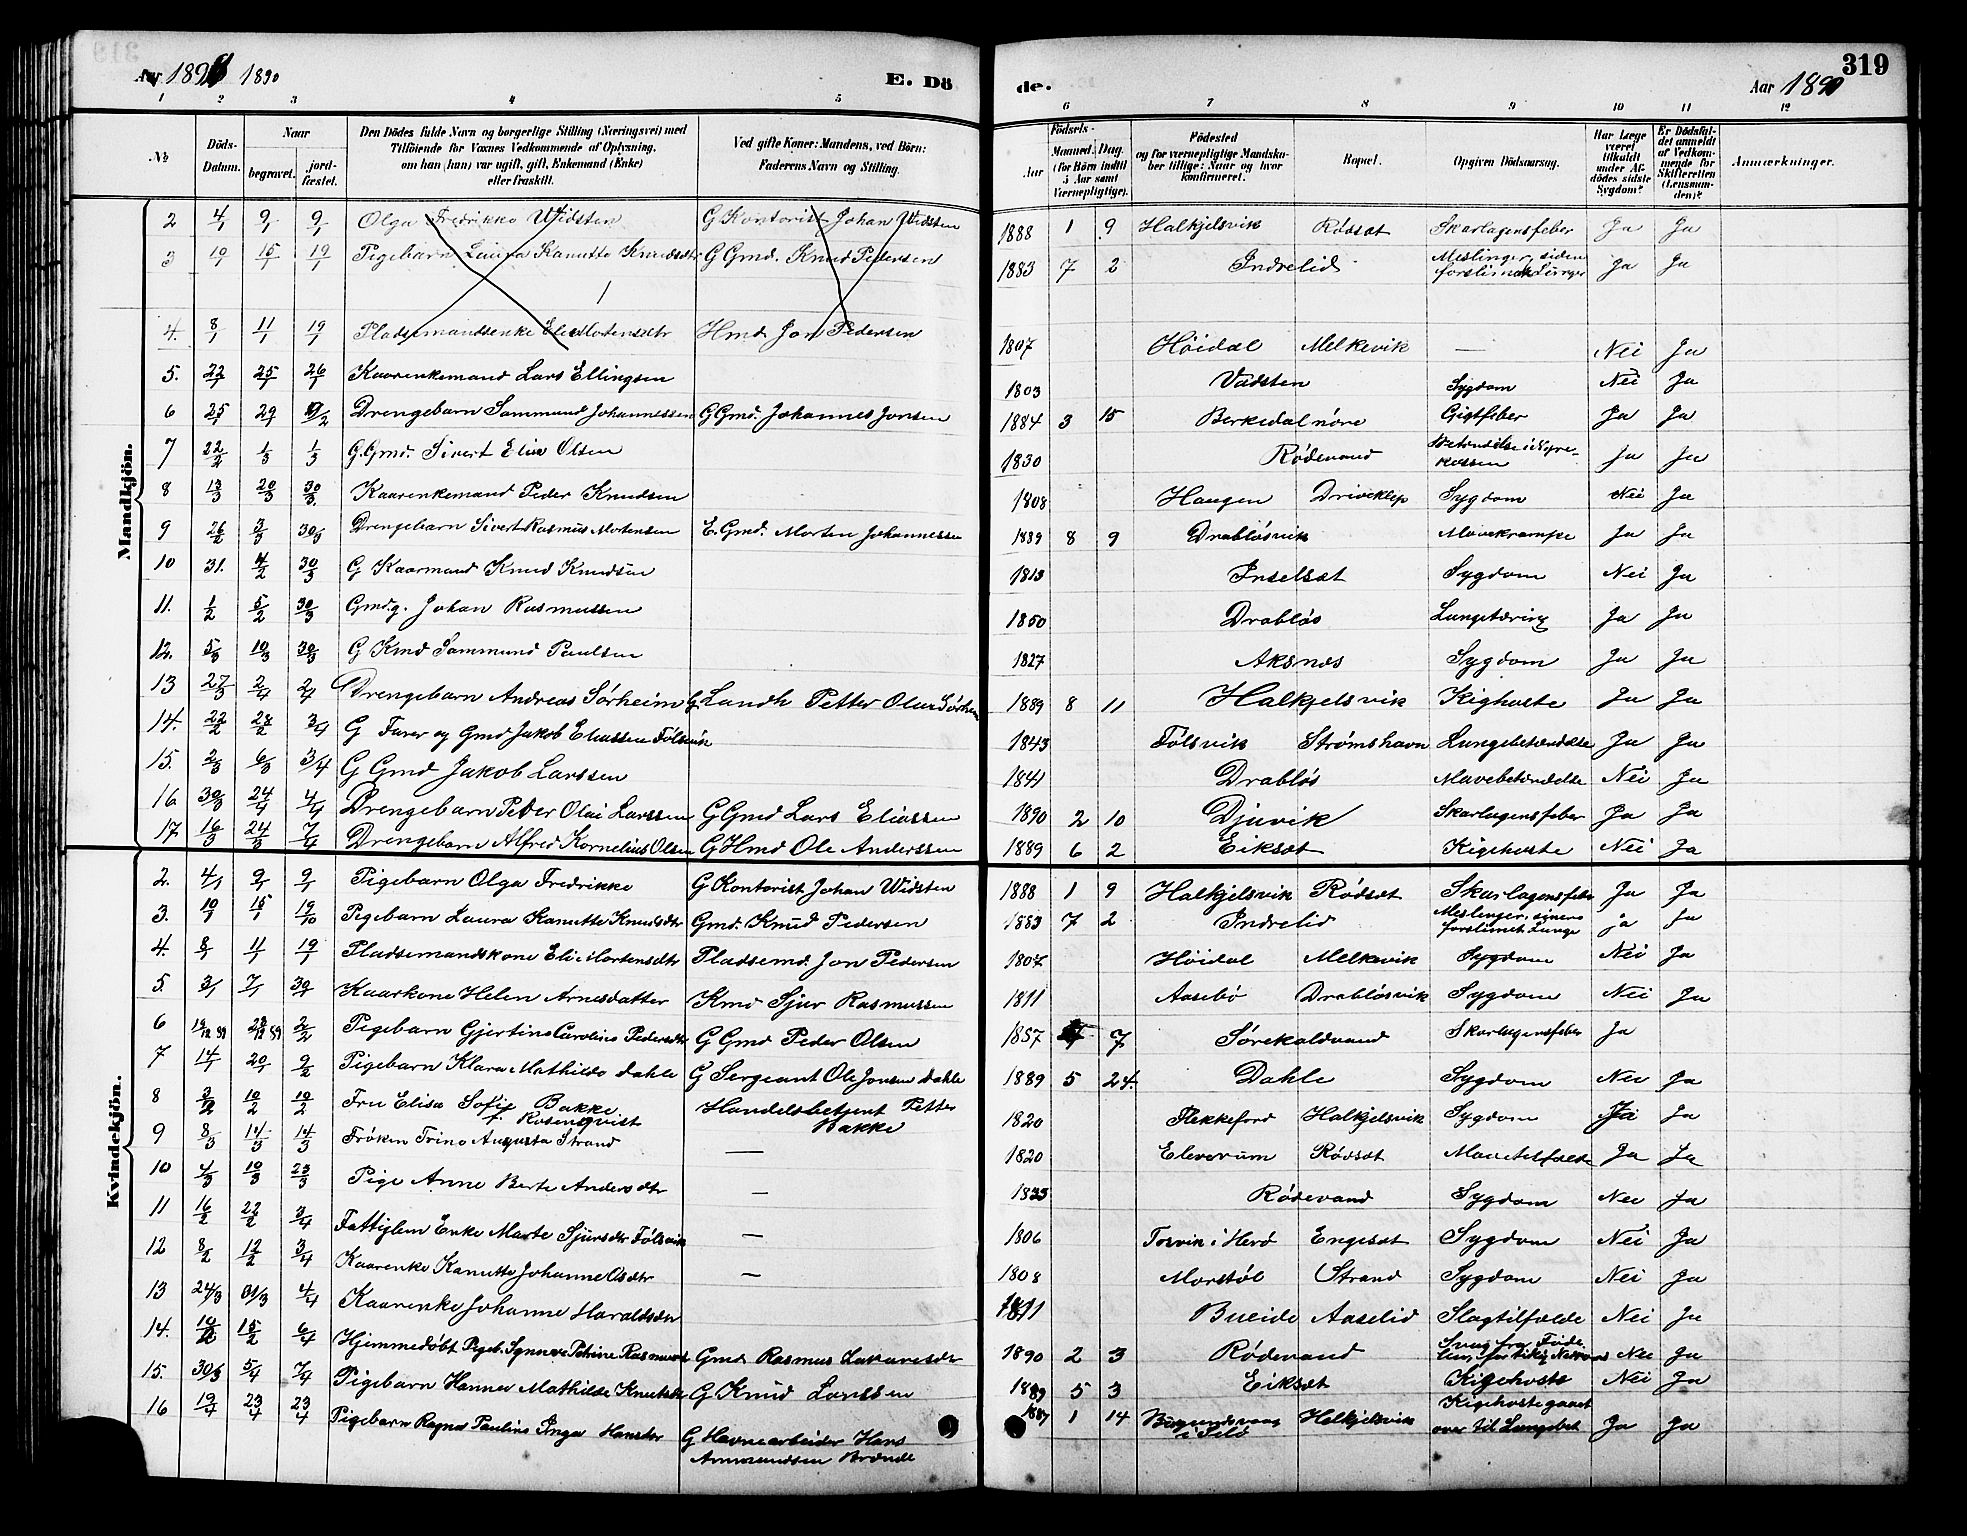 319
Aar 1890 1890
E. Dö
de.
Aar 1890
1 2 3 4 5 6 7 8 9 10 11 12
No
Döds-Datum.
Naar
begravet.
jord-fæstet.
Den Dödes fulde Navn og borgerlige Stilling (Næringsvei) med
Tilföiende for Voxnes Vedkommende af Oplysning,
om han (hun) var ugift, gift, Enkemand (Enke)
eller fraskilt.
Ved gifte Koner: Mandens, ved Börn:
Faderens Navn og Stilling.
Födsels-
Aar Maaned. Dag.
(for Börn indtil 5 Aar samt Værnepligtige).
Födested
og for værnepligtige Mandska-
ber tillige: Naar og hvor
konfirmeret.
Bopæl.
Opgiven Dödsaarsag.
Har Læge været tilkaldt under Afdödes sidste Sygdom?
Er Dödsfaldet anmeldt af Vedkommende for Skifteretten (Lensmanden)?
Anmærkninger.
Mandkjön.
2 4/1 9/1 9/1 Olga Fredrikke Widsten G Kontorist Johan Widsten 1888 1 9 Halkjelsvik Rødsæt Skarlagensfeber Ja Ja
3 10/1 15/1 19/1 Pigebarn Laura Kanutte Knudsdtr G Gmd. Knud Pedersen 1883 7 2 Indrelid Meslinger, siden forslimet Lunger Ja Ja
4. 8/1 11/1 19/1 Pladsemandsenke Eli Mortensdtr Hmd Jon Pedersen 1807 Høidal Melkevik — Nei Ja
5. 22/1 25/1 26/1 Kaarenkemand Lars Ellingsen 1803 Vadsten Sygdom Nei Ja
6 25/1 29/1 9/2 Drengebarn Sammund Johannessen G Gmd. Johannes Jonsen 1884 3 15 Berkedal nøre Gigtfeber Ja Ja
7 22/2 1/3 1/3 G. Gmd. Sivert Elias Olsen 1830 Rødevand Betændelse i Nyre- Ja Ja
8 13/3 20/3 30/3. Kaarenkemand Peder Knudsen 1808 Haugen Driveklep Sygdom Nei Ja
9 26/2 3/3 30/3 Drengebarn Sivert Rasmus Mortensen E. Gmd. Morten Johannessen 1889 8 9 Drabløsvik Mavekrampe Ja Ja
10 31. 4/2 30/3 G Kaarmand Knud Knudsen 1813 Inselsæt Sygdom Nei Ja
11. 1/2 5/2 30/3 Gmd. g. Johan Rasmussen 1850 Drabløs Lungetæring Ja Ja
12. 5/3 10/3 30/3 G Kmd Sammund Paulsen 1827 Aksnæs Sygdom Ja Ja
13 27/3 2/4 2/4 Drengebarn Andreas Sørheim G. Landh Petter Olai Sørheim 1889 8 11 Halkjelsvik Kighoste Ja Ja
14. 22/2 28/2 3/4 G Farer og Gmd Jakob Eliassen Følsvik 1843 Følsvik Strømshavn Lungebetændelse Ja Ja
15. 2/3 6/3 3/4 G Gmd Jakob Larssen 1841 Drabløs Mavebetændelse Nei Ja
16 30/3 24/4 4/4 Drengebarn Peder Olai Larssen G Gmd Lars Eliassen 1890 2 10 Djuvik Skarlagensfeber Ja Ja
17. 16/3 24/3 7/4 Drengebarn Alfred Kornelius Olsen G Hmd Ole Anderssen 1889 6 2 Eiksæt Kigehoste Nei Ja
Kvindekjön.
2. 4/1 9/1 9/1 Pigebarn Olga Fredrikke G Kontorist Johan Widsten 1888 1 9 Halkjelsvik Rødsæt Skarlagensfeber Ja Ja
3. 10/1 15/1 19/10 Pigebarn Laura Kanutte Knudsdtr Gmd. Knud Pedersen 1883 7 2 Indrelid Meslinger, forslimet Lunge ja Ja
4. 8/1 11/1 19/1 Pladsemandskone Eli Mortensdtr Pladsemd. Jon Pedersen 1807 Høidal Melkevik Sygdom Nei Ja
5. 3/1 7/1 30/1 Kaarkone Helen Arnesdatter Kmd Sjur Rasmussen 1811 Aasebø Drabløsvik Sygdom Nei Ja
6 19/12 89 28/12 89 2/2 Pigebarn Gjertine Caroline Pedersdtr G Gmd Peder Olsen 1857 7 Sørekaldvand Skarlagensfeber Ja
7 14/1 20/1 9/2 Pigebarn Klara Mathilde Dahle G Sergeant Ole Jonsen Dahle 1889 5 24. Dahle Sygdom Nei Ja
8 3/2 10/2 10/2 Fru Elisa Sofie Bakke f. Rosenqvist Handelsbetjent Petter Bakke 1820 Flekkefjord Halkjelsvik Sygdom Ja Ja
9 8/3 14/3 14/3 Frøken Trine Augusta Strand — 1820 Eleverum Rødsæt Ja Ja
10 4/3 10/3 23/3 Pige Anne Berte Andersdtr — 1835 Rødevand Sygdom Nei Ja
11 16/2 22/2 3/4 Fattiglem Enke Marte Sjursdtr Følsvik — 1806 Torvik i Herø Engesæt Sygdom Nei Ja
12 8/2 12/2 3/4 Kaarenke Kanutte Johanne Osdtr — 1808 Morstøl Strand Sygdom Nei Ja
13 24/3 31/3 4/4 Kaarenke Johanne Haraldsdtr 1811 Bueide Aaselid Slagtilfælde Nei Ja
14. 10/2 15/2 6/4 Hjemmedøbt Pigeb. Synnøve Petrine Rasmusd Gmd Rasmus Zakariesdtr 1890 2 3 Rødevand Svag fra Føde Nei Ja
15. 30/3 5/4 7/4 Pigebarn Hanna Mathilde Knutsdtr G Knud Larssen 1889 5 3 Eiksæt Kigehoste Nei Ja
16 19/4 23/4 23/4 Pigebarn Ragna Pauline Inga Hansdtr G Havnearbeider Hans Ammundsen Brænde 1887 1 14 Halkjelsvik Kigehoste gaaet over til Lungebet Ja Ja